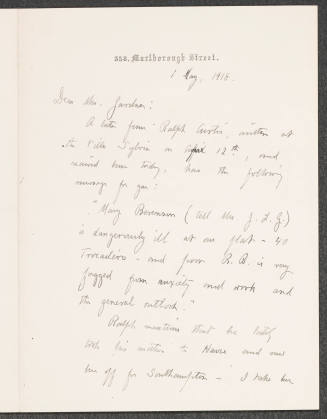 558, Marlborough Street.
1 May, 1918.
Dear Mrs. Gardner:
A letter from Ralph Curtis, written at
the Villa Sylvia on April 12th, and
received here today, has the following
message for you:
"Mary Berenson (tell Mrs. J. L. G.)
is dangerously ill at our flat - 40
Trocadéro - and poor B. B. is very
fagged from anxiety and work and
the general outlook."
Ralph mentions that he lately
took his mother to Havre and saw
her off for Southampton - I take her